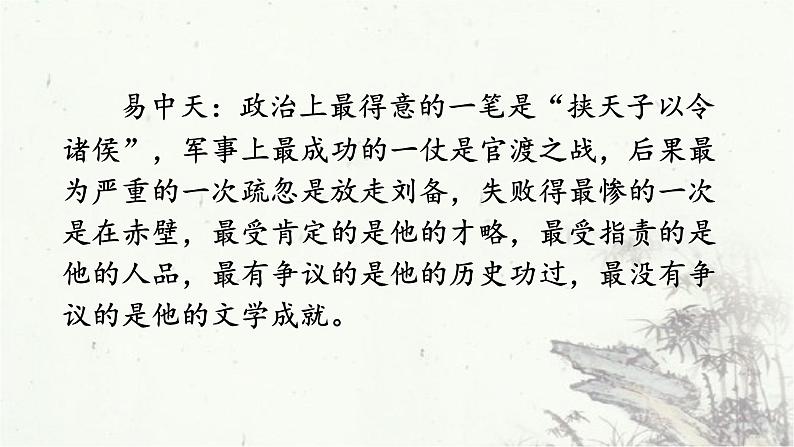 易中天：政治上最得意的一笔是“挟天子以令
诸侯”，军事上最成功的一仗是官渡之战，后果最
为严重的一次疏忽是放走刘备，失败得最惨的一次
是在赤壁，最受肯定的是他的才略，最受指责的是
他的人品，最有争议的是他的历史功过，最没有争
议的是他的文学成就。